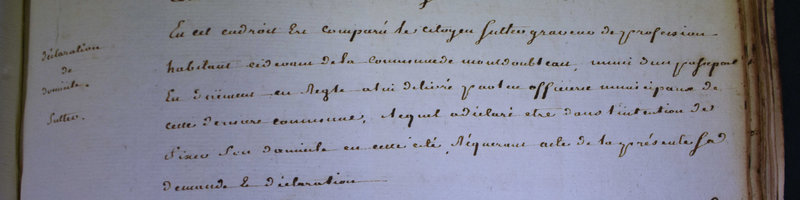 déclaration
de
domicile.
Sutter.
En cet endroit Est comparû le citoyen Sutter graveur de profession
habitant cidevant de la commune de montdoubleau, muni d'un passeport
En duement en Regle a lui délivré par les officiers municipaux de
cette derniere commune, lequel a déclaré etre dans l'intention de
fixer son domicile en cette cité, Réquerant acte de la présente sad
demande & déclaration